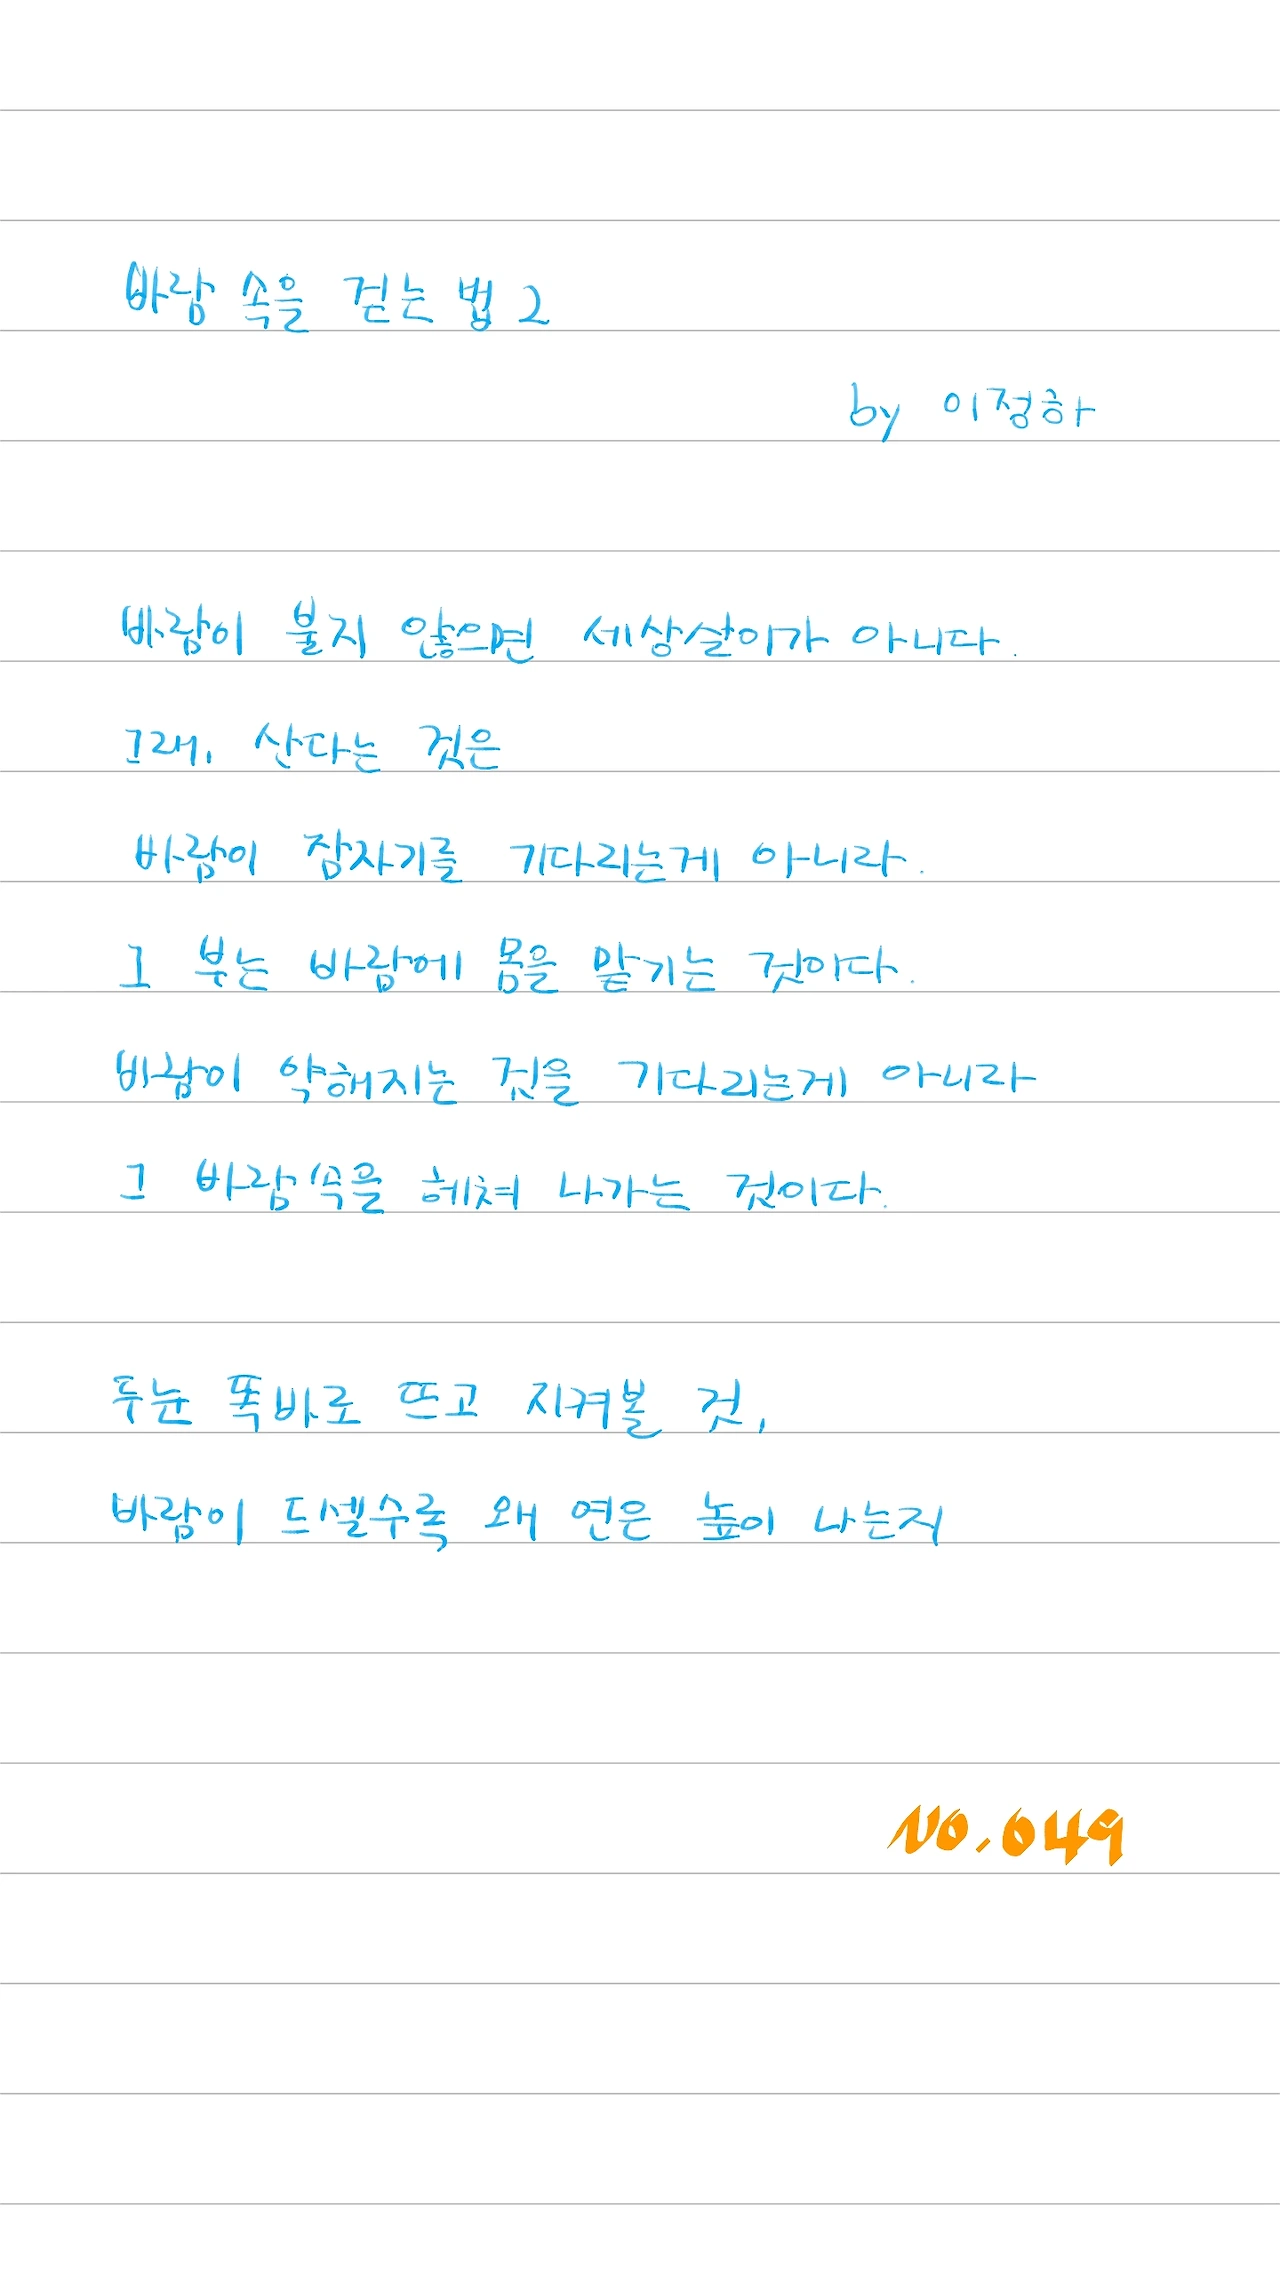 바람 속을 걷는 법 2
by 이정하
바람이 불지 않으면 세상살이가 아니다.
그래, 산다는 것은
바람이 잠자기를 기다리는게 아니라.
그 부는 바람에 몸을 맡기는 것이다.
바람이 약해지는 것을 기다리는게 아니라
그 바람 속을 헤쳐 나가는 것이다.
두눈 똑바로 뜨고 지켜볼 것,
바람이 드셀수록 왜 연은 높이 나는지
NO.049